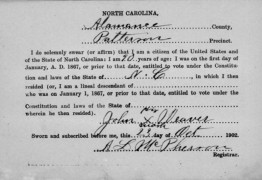 NORTH CAROLINA,
Alamance County,
Patterson
I do solemnly swear (or affirm) that I am a citizen of the United States and
of the State of North Carolina: I am 50 years of age: I was on the first day of
January, A. D. 1867, or prior to that date, entitled to vote under the Constitu-
tion and laws of the State of N.C, in which I then
resided (or, I am a lineal descendant of
who was on January 1, 1867, or prior to that date, entitled to vote under the
Constitution and laws of the State of
wherein he then resided).
his
John X Weaver
mark
Sworn and subscribed before me, this 23 day of Oct 1902.
A L McPherson
Registrar.